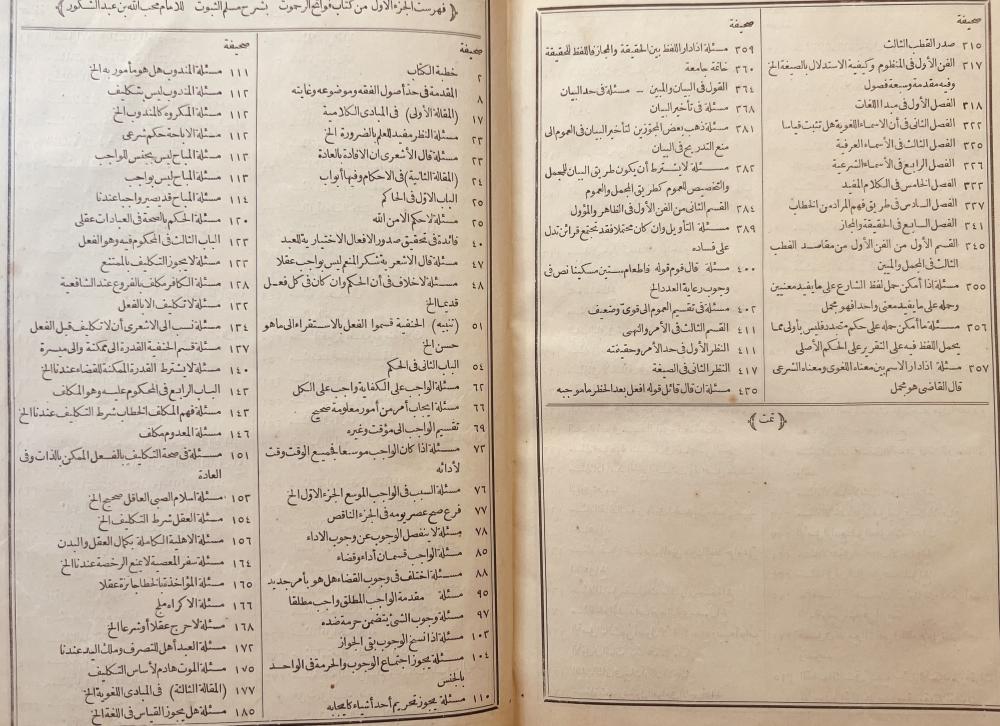 صحيفة
٣١٥ صدر القطب الثالث
٣١٧ الفن الأول فى المنظوم وكيفية الاستدلال بالصيغة الخ
وفيه مقدمة وسبعة فصول
٣١٨ الفصل الأول فى مبدا اللغات
٣٢٢ الفصل الثانى فى أن الاسماء اللغوية هل تثبت قياسا
٣٢٥ الفصل الثالث فى الاسماء العرفية
٣٢٦ الفصل الرابع فى الأسماء الشرعية
٣٣٣ الفصل الخامس فى الكلام المفيد
٣٣٧ الفصل السادس فى طريق فهم المراد من الخطاب
٣٤١ الفصل السابع فى الحقيقة والمجاز
٣٤٥ القسم الأول من الفن الأول من مقاصد القطب
الثالث فى المجمل والمبين
٣٥٥ مسئلة اذا أمكن حمل لفظ الشارع على ما يفيد معنيين
وحمله على ما يفيد معنى واحدا فهو مجمل
٣٥٦ مسئلة ما أمكن حمله على حكم متجدد فليس بأولى مما
يحمل اللفظ فيه على التقرير على الحكم الأصلى
٣٥٧ مسئلة اذا دار الاسم بين معناه اللغوى ومعناه الشرعى
قال القاضى هو مجمل
صحيفة
٣٥٩ مسئلة اذا دار اللفظ بين الحقيقة والمجاز فاللفظ للحقيقة
٣٦٠ خاتمة جامعة
٣٦٤ القول فى البيان والمبين - مسئلة فى حد البيان
٣٦٨ مسئلة فى تأخير البيان
٣٨١ مسئلة ذهب بعض المجوّزين لتأخير البيان فى العموم الى
منع التدريج فى البيان
٣٨٢ مسئلة لا يشترط أن يكون طريق البيان للمجمل
والتخصيص للعموم كطريق المجمل والعموم
٣٨٤ القسم الثانى من الفن الأول فى الظاهر والمؤول
٣٨٩ مسئلة التأويل وان كان محتملا فقد تجتمع قرائن تدل
على فساده
٤٠٠ مسئلة قال قوم قوله فاطعام ستين مسكينا نص فى
وجوب رعاية العدد الخ
٤٠٢ مسئلة فى تقسيم العموم الى قوىّ وضعيف
٤١١ القسم الثالث فى الأمر والنهى
٤١١ النظر الأول فى حد الأمر وحقيقته
٤١٧ النظر الثانى فى الصيغة
٤٣٥ مسئلة ان قال قائل قوله افعل بعد الحظر ما موجبه
﴿ تمت ﴾
﴿ فهرست الجزء الأول من كتاب فواتح الرحموت بشرح مسلم الثبوت للامام محب الله بن عبد الشكور ﴾
صحيفة
٢ خطبة الكتاب
٨ المقدمة فى حد أصول الفقه وموضوعه وغايته
١٧ (المقالة الأولى) فى المبادى الكلامية
٢٣ مسئلة النظر مفيد للعلم بالضرورة الخ
٢٣ مسئلة قال الأشعرى ان الافادة بالعادة
٢٤ (المقالة الثانية) فى الاحكام وفيها أبواب
٢٥ الباب الاول فى الحاكم
٢٥ مسئلة لا حكم الا من الله
٤٠ فائدة فى تحقيق صدور الافعال الاختيارية للعبد
٤٧ مسئلة قال الاشعرية شكر المنعم ليس بواجب عقلا
٤٨ مسئلة لا خلاف فى أن الحكم وان كان فى كل فعل
قديما الخ
٥١ (تنبيه) الحنفية قسموا الفعل بالاستقراء الى ما هو
حسن الخ
٥٤ الباب الثانى فى الحكم
٦٢ مسئلة الواجب على الكفاية واجب على الكل
٦٦ مسئلة ايجاب أمر من أمور معلومة صحيح
٦٩ تقسيم الواجب الى مؤقت وغيره
٧٢ مسئلة اذا كان الواجب موسعا فجميع الوقت وقت
لأدائه
٧٦ مسئلة السبب فى الواجب الموسع الجزء الاوّل الخ
٧٧ فرع صح عصر يومه فى الجزء الناقص
٧٨ مسئلة لا ينفصل الوجوب عن وجوب الاداء
٨٥ مسئلة الواجب قسمان أداء وقضاء
٨٨ مسئلة اختلف فى وجوب القضاء هل هو بأمر جديد
٩٥ مسئلة مقدمة الواجب المطلق واجب مطلقا
٩٧ مسئلة وجوب الشئ يتضمن حرمة ضده
١٠٣ مسئلة اذا نسخ الوجوب بقى الجواز
١٠٤ مسئلة يجوز اجتماع الوجوب والحرمة فى الواحد
بالجنس
١١٠ مسئلة يجوز تحريم أحد أشياء كايجابه
صحيفة
١١١ مسئلة المندوب هل هو مأمور به الخ
١١٢ مسئلة المندوب ليس بتكليف
١١٢ مسئلة المكروه كالمندوب الخ
١١٢ مسئلة الاباحة حكم شرعى
١١٣ مسئلة المباح ليس بجنس للواجب
١١٣ مسئلة المباح ليس بواجب
١١٤ مسئلة المباح قد يصير واجبا عندنا
١٢٠ مسئلة الحكم بالصحة فى العبادات عقلى
١٢٣ الباب الثالث فى المحكوم فيه وهو الفعل
١٢٣ مسئلة لا يجوز التكليف بالممتنع
١٢٨ مسئلة الكافر مكلف بالفروع عند الشافعية
١٣٢ مسئلة لا تكليف الا بالفعل
١٣٤ مسئلة نسب الى الاشعرى أن لا تكليف قبل الفعل
١٣٧ مسئلة قسم الحنفية القدرة الى ممكنة والى ميسرة
١٤٠ مسئلة لا يشترط القدرة الممكنة للقضاء عندنا الخ
١٤٣ الباب الرابع فى المحكوم عليه وهو المكلف
١٤٣ مسئلة فهم المكلف الخطاب شرط التكليف عندنا الخ
١٤٦ مسئلة المعدوم مكلف
١٥١ مسئلة فى صحة التكليف بالفعل الممكن بالذات وفى
العادة
١٥٣ مسئلة اسلام الصبى العاقل صحيح الخ
١٥٤ مسئلة العقل شرط التكليف الخ
١٥٦ مسئلة الاهلية الكاملة بكمال العقل والبدن
١٦٤ مسئلة سفر المعصية لا يمنع الرخصة عندنا الخ
١٦٥ مسئلة المؤاخذة بالخطا جائزة عقلا
١٦٦ مسئلة الاكراه ملجئ
١٦٨ مسئلة لا حرج عقلا أو شرعا الخ
١٧٢ مسئلة العبد أهل للتصرف وملك اليد عندنا
١٧٥ مسئلة الموت هادم لأساس التكليف
١٧٧ (المقالة الثالثة) فى المبادى اللغوية الخ
١٨٥ مسئلة هل يجوز القياس فى اللغة الخ